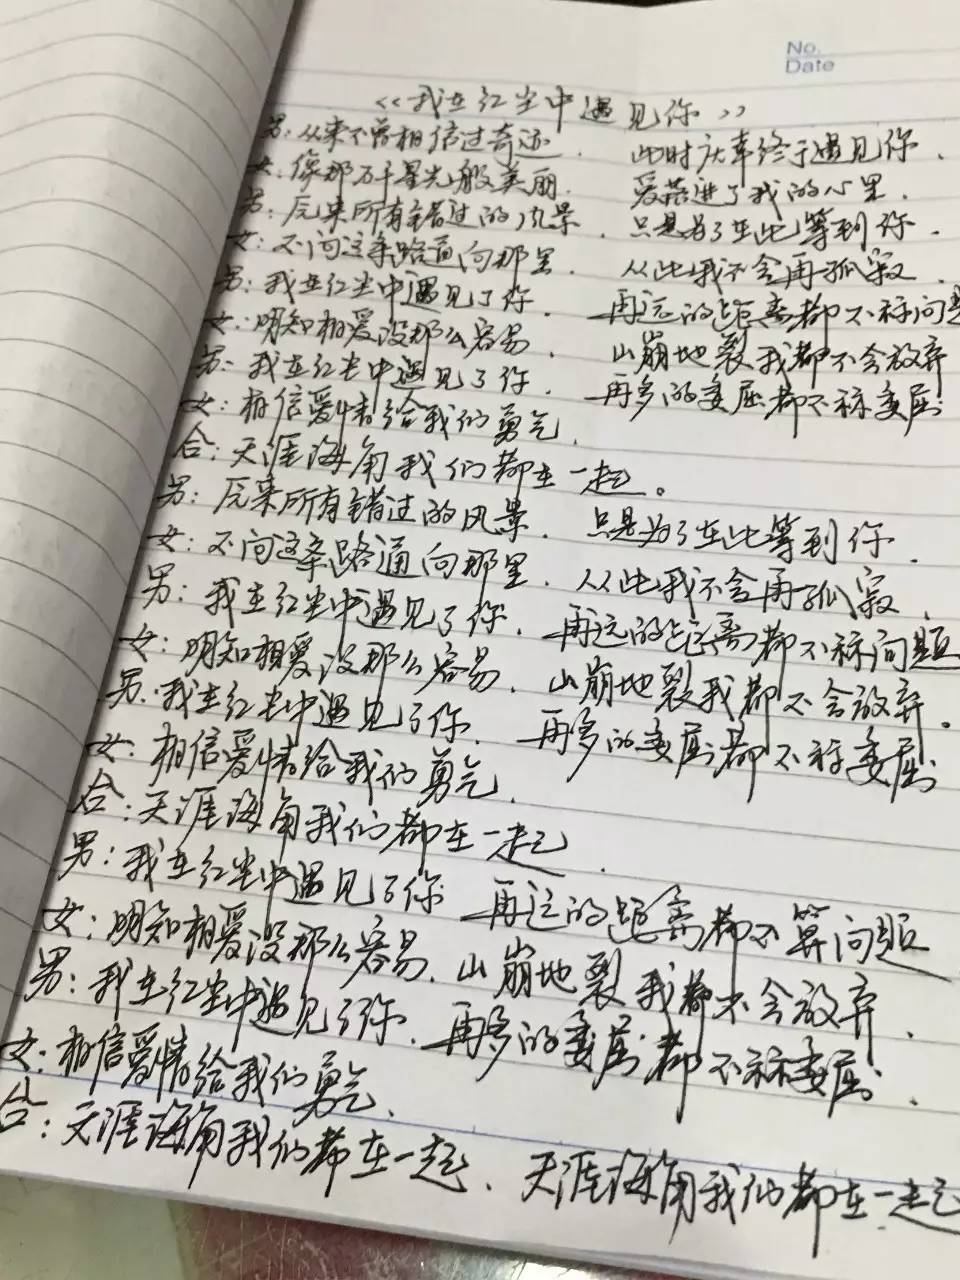 No.
Date
《我在红尘中遇见你》
男：从来不曾相信过奇迹． 此时庆幸终于遇见你．
女：像那万千星光般美丽． 爱若进了我的心里．
男：原来所有错过的风景． 只是为了在此等到你．
女：不问这条路通向那里． 从此我不会再孤寂．
男：我在红尘中遇见了你． 再远的距离都不称问题
女：明知相爱没那么容易． 山崩地裂我都不会放弃
男：我在红尘中遇见了你． 再多的委屈都不称委屈
女：相信爱情给我们勇气．
合：天涯海角我们都在一起。
男：原来所有错过的风景． 只是为了在此等到你．
女：不问这条路通向那里． 从此我不会再孤寂．
男：我在红尘中遇见了你． 再远的距离都不称问题
女：明知相爱没那么容易． 山崩地裂我都不会放弃。
男：我在红尘中遇见了你． 再多的委屈都不称委屈
女：相信爱情给我们勇气．
合：天涯海角我们都在一起．
男：我在红尘中遇见了你 再远的距离都不算问题
女：明知相爱没那么容易． 山崩地裂我都不会放弃．
男：我在红尘中遇见了你． 再多的委屈都不称委屈．
女：相信爱情给我们勇气．
合：天涯海角我们都在一起． 天涯海角我们都在一起